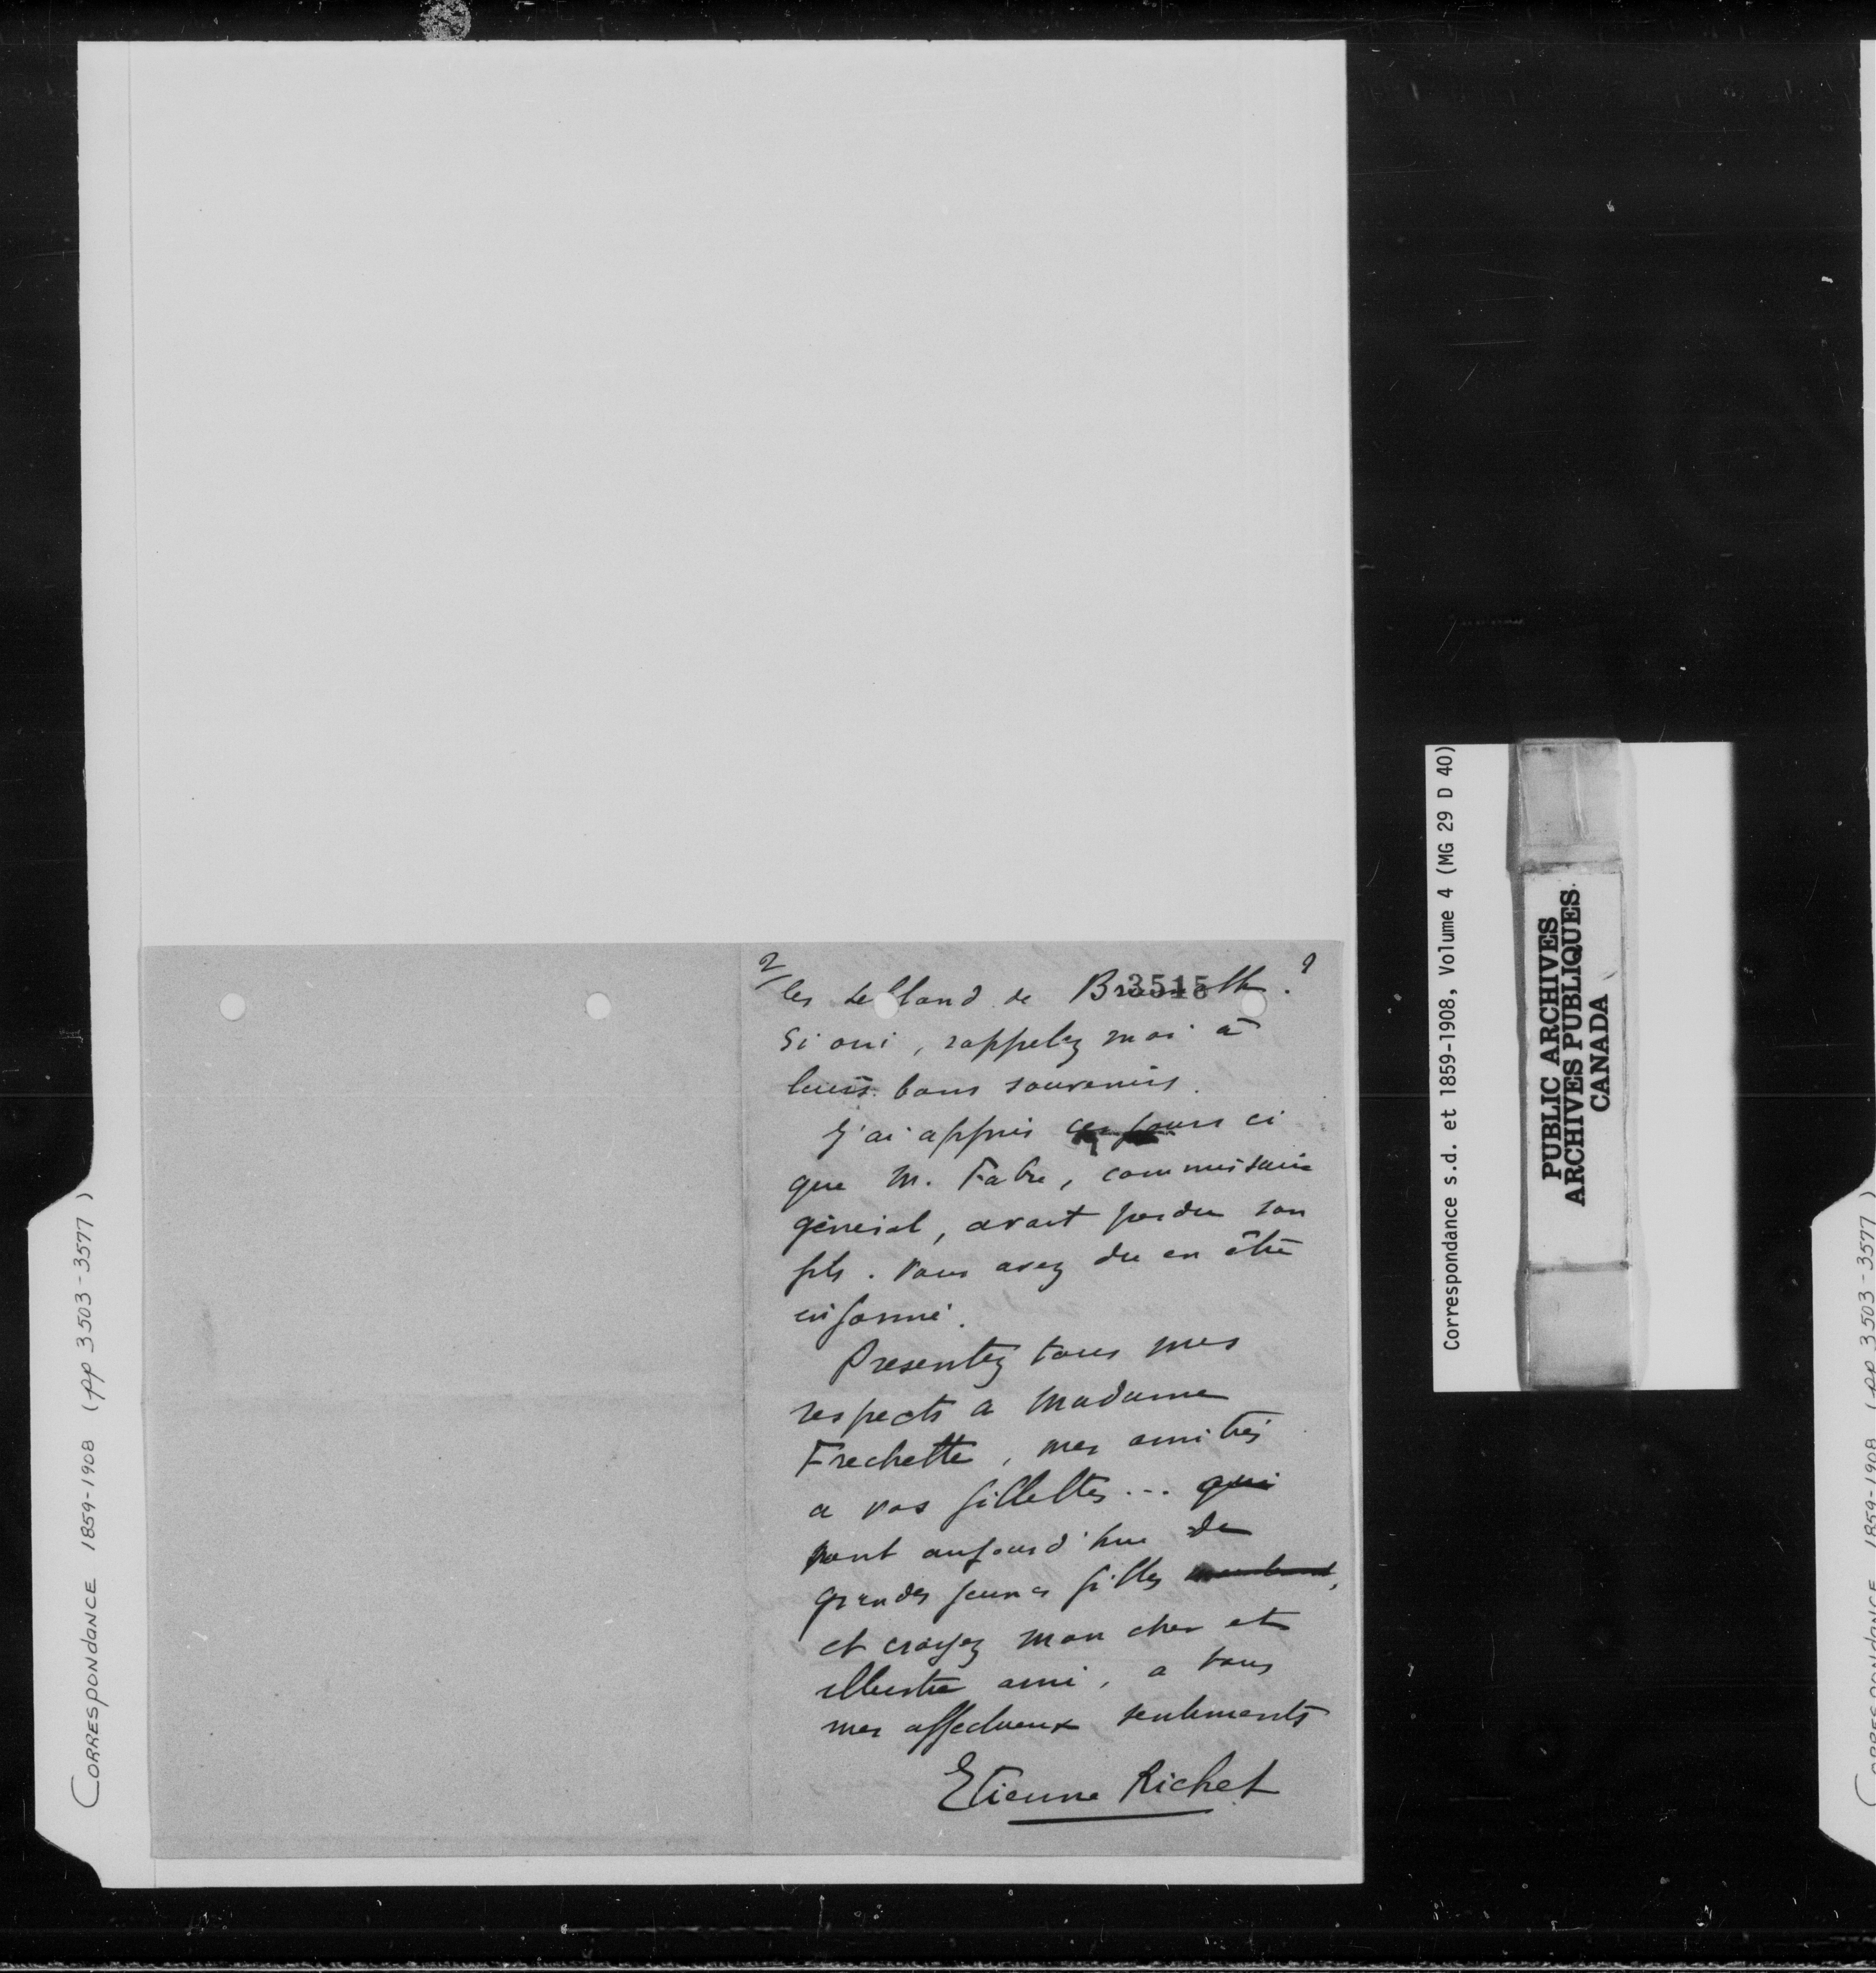 2/
les de Bland de ?
3515
Si oui, rappelez moi à
leurs bons souvenirs.
J'ai appris ces jours ci
que M. Fabre, commissaire
général, avait perdu son
fils. Vous avez du en être
informé.
Presentez tous mes
respects a Madame
Frechette, mes amitiés
a vos fillettes... qui
sont aujourd'hui de
grandes jeunes filles,
et croyez mon cher et
illustre ami, a tous
mes affectueux sentiments
Etienne Richet
CORRESPONDANCE 1859-1908 (pp 3503-3577)
Correspondance s.d. et 1859-1908, Volume 4 (MG 29 D 40)
PUBLIC ARCHIVES
ARCHIVES PUBLIQUES
CANADA
CORRESPONDANCE 1859-1908 (pp 3503-3577)